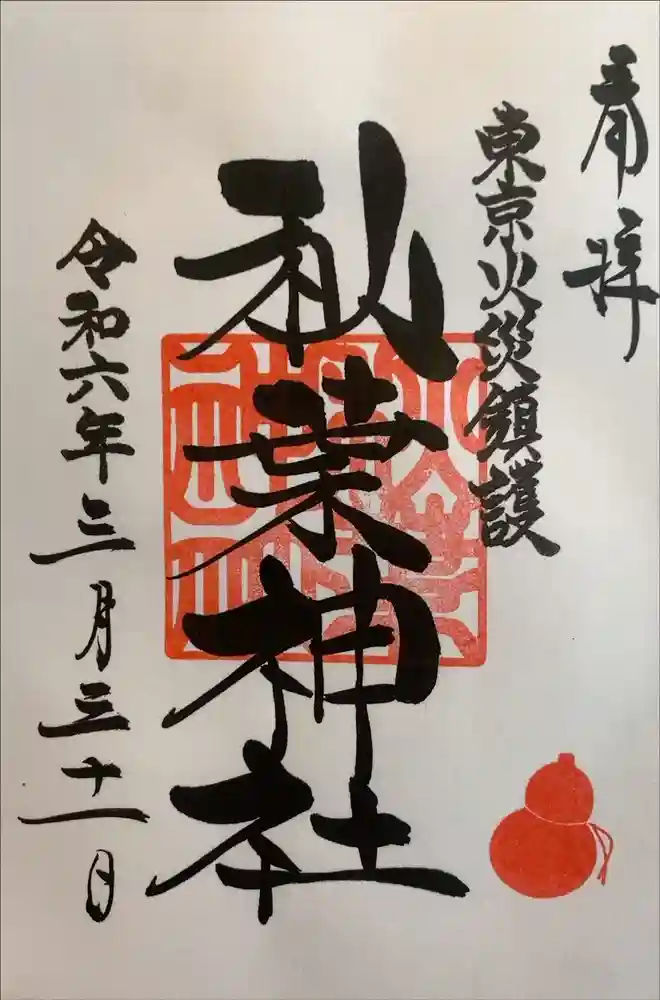 奉拝
東京火災鎮護
秋葉神社
令和六年三月三十一日